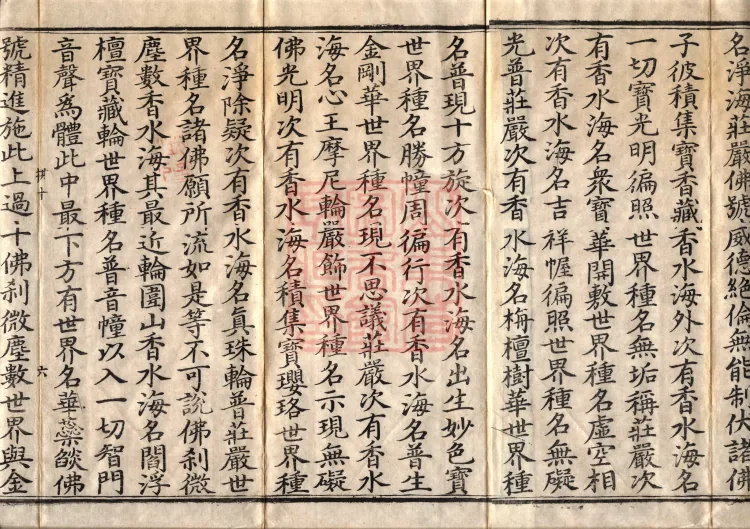 名淨海莊嚴佛號威德絕倫無能制伏諸佛
子彼積集寶香藏香水海外次有香水海名
一切寶光明徧照世界種名無垢稱莊嚴次
有香水海名衆寶華開敷世界種名虛空相
次有香水海名吉祥幄徧照世界種名無礙
光普莊嚴次有香水海名栴檀樹華世界種
名普現十方旋次有香水海名出生妙色寶
世界種名勝幢周徧行次有香水海名普生
金剛華世界種名現不思議莊嚴次有香水
海名心王摩尼輪嚴飾世界種名示現無礙
佛光明次有香水海名積集寶瓔珞世界種
名淨除疑次有香水海名眞珠輪普莊嚴世
界種名諸佛願所流如是等不可說佛刹微
塵數香水海其最近輪圍山香水海名閻浮
檀寶藏輪世界種名普音幢以入一切智門
音聲為體此中最下方有世界名華蘂燄佛
號精進施此上過十佛刹微塵數世界與金
十 六